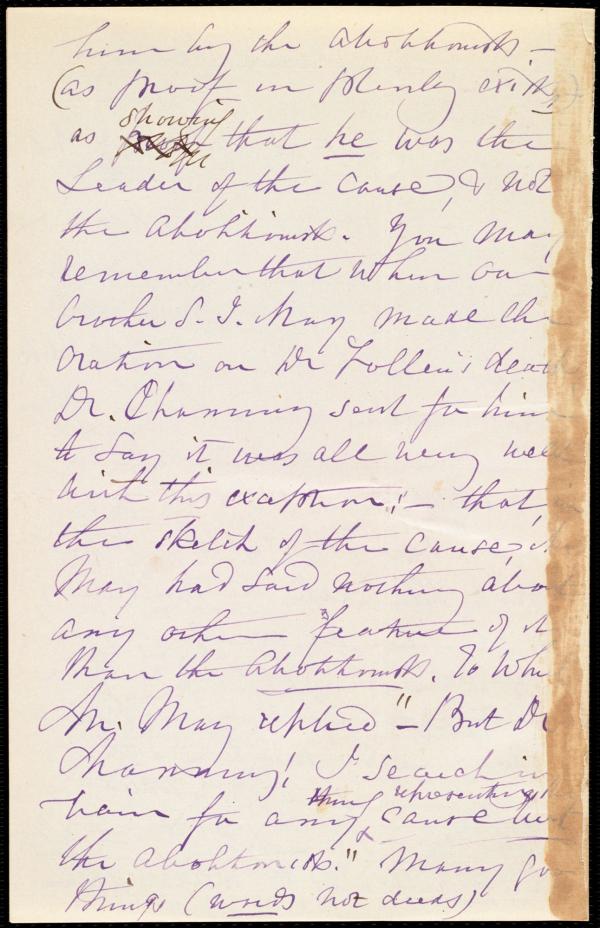 him by the Abolitionists –
(as proof in plenty exists,)
as showing that he was the
Leader of the Cause, & not
the Abolitionists. You may
remember that when our
brother S. J. May made the
Oration on Dr Follen's death
Dr. Channing sent for him
to say it was all very well
with this exception; – that, in
the sketch of the Cause, Mr
May had said nothing about
any other feature of it
than the Abolitionists. To which
Mr. May replied "– But Dr
Channing! I search in
vain for any thing representing the
cause but
the Abolitionists." Many good
things (words not deeds)